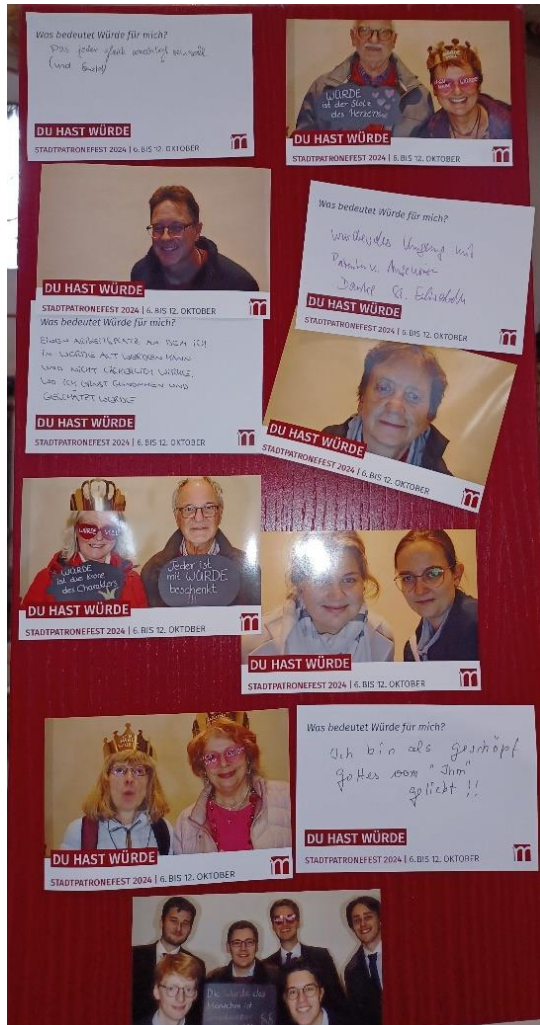 Was bedeutet Würde für mich?
Das jeder gleich
(und
DU HAST WÜRDE
STADTPATRONEFEST 2024 | 6. BIS 12. OKTOBER
WÜRDE
ist der Stolz
des Herzens
DU HAST WÜRDE
STADTPATRONEFEST 2024 | 6. BIS 12. OKTOBER
DU HAST WÜRDE
STADTPATRONEFEST 2024 | 6. BIS 12. OKTOBER
Was bedeutet Würde für mich?
Umgang mit
Danke
DU HAST WÜRDE
STADTPATRONEFEST 2024 | 6. BIS 12. OKTOBER
Was bedeutet Würde für mich?
EINEN ARBEITSPLATZ AN DEM ICH
IN WÜRDE ALT WERDEN KANN
UND NICHT
WO ICH ERNST GENOMMEN UND
GESCHÄTZT WERDE
DU HAST WÜRDE
STADTPATRONEFEST 2024 | 6. BIS 12. OKTOBER
DU HAST WÜRDE
STADTPATRONEFEST 2024 | 6. BIS 12. OKTOBER
WÜRDE
WÜRDE
ist die Krone
des Charakters
Jeder ist
mit WÜRDE
beschenkt!!
DU HAST WÜRDE
STADTPATRONEFEST 2024 | 6. BIS 12. OKTOBER
DU HAST WÜRDE
STADTPATRONEFEST 2024 | 6. BIS 12. OKTOBER
DU HAST WÜRDE
STADTPATRONEFEST 2024 | 6. BIS 12. OKTOBER
Was bedeutet Würde für mich?
Ich bin als geschöpf
gottes von "Ihm"
geliebt !!
DU HAST WÜRDE
STADTPATRONEFEST 2024 | 6. BIS 12. OKTOBER
Die Würde des
Menschen ist